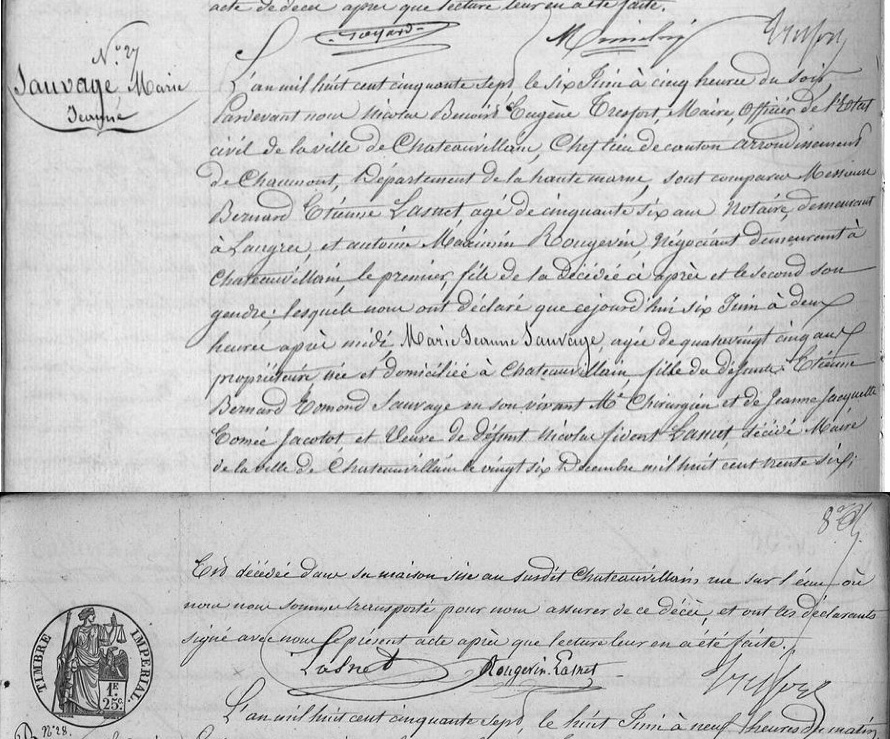 acte de décès après que lecture leur en a été faite.
N.° 27
Sauvage Marie
Jeanne
L'an mil huit cent cinquante sept, le six Juin à cinq heures du soir
Pardevant nous Nicolas Benoist Eugène Tresfort, Maire, Officier de l'Etat
civil de la ville de Chateauvillain, Chef lieu de canton arrondissement
de Chaumont, Département de la haute marne, sont comparus Messieurs
Bernard Etienne Lasnet agé de cinquante six ans Notaire, demeurant
à Langres, et antoine Maximin Rougevin, Négociant demeurant à
Chateauvillain, le premier, fils de la décédée ci après et le second son
gendre; lesquels nous ont déclaré que cejourd'hui six Juin à deux
heures après midi, Marie Jeanne Sauvage, agée de quatrevingt cinq ans
propriétaire née et domiciliée à Chateauvillain, fille du défunts Etienne
Bernard Edmond Sauvage en son vivant Me. Chirurgien et de Jeanne Jacquette
Comée Jacotot et Veuve de défunt Nicolas Lasnet décédé Maire
de la ville de Chateauvillain le vingt six Décembre mil huit cent trente six;
Est décédée dans sa maison sise au susdit Chateauvillain rue sur l'eau où
nous nous sommes transporté pour nous assurer de ce décès, et ont les déclarants
signé avec nous le présent acte après que lecture leur en a été faite.
Lasnet Rougevin-Lasnet
TIMBRE IMPERIAL
1F
25c
N° 28.
L'an mil huit cent cinquante sept, le huit Juin à neuf heures du matin